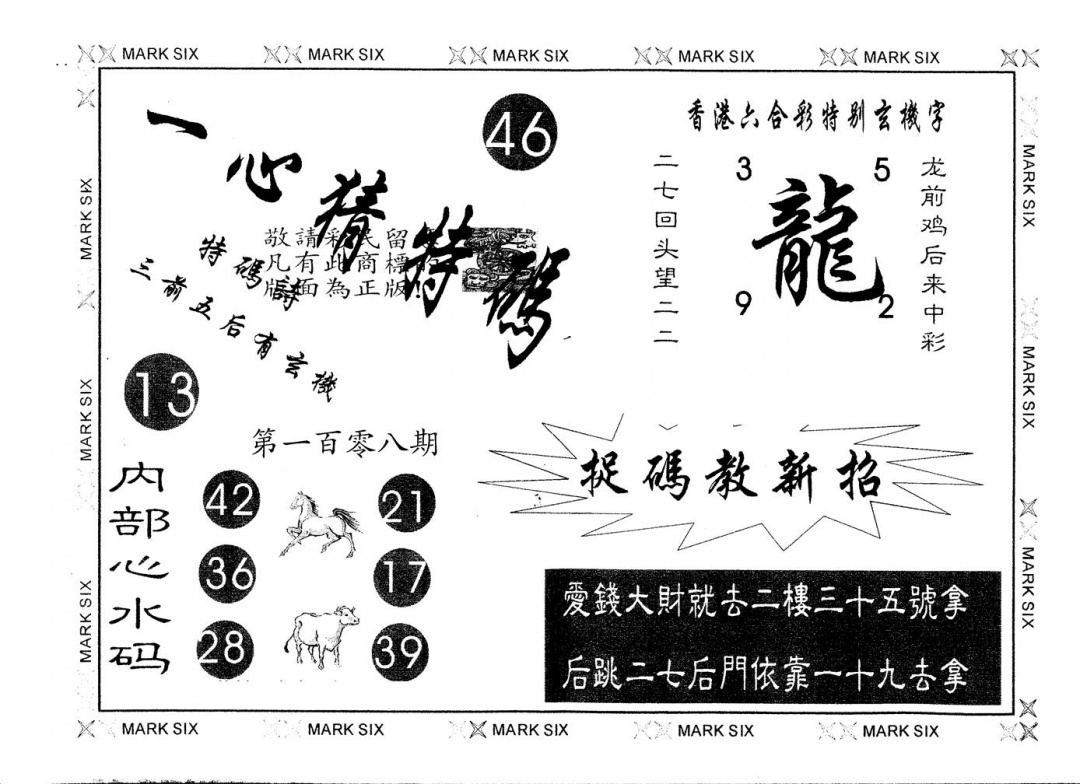 MARK SIX MARK SIX MARK SIX MARK SIX MARK SIX
一心猜特碼
46
敬請彩民留
凡有此商標
版面為正版
特碼詩
三前五后有玄機
13
香港六合彩特别玄機字
二七回头望二二
3 5
龍
9 2
龙前鸡后来中彩
第一百零八期
内部心水码
42 21
36 17
28 39
捉碼教新招
愛錢大財就去二樓三十五號拿
后跳二七后門依靠一十九去拿
MARK SIX
MARK SIX
MARK SIX
MARK SIX
MARK SIX
MARK SIX
MARK SIX MARK SIX MARK SIX MARK SIX MARK SIX